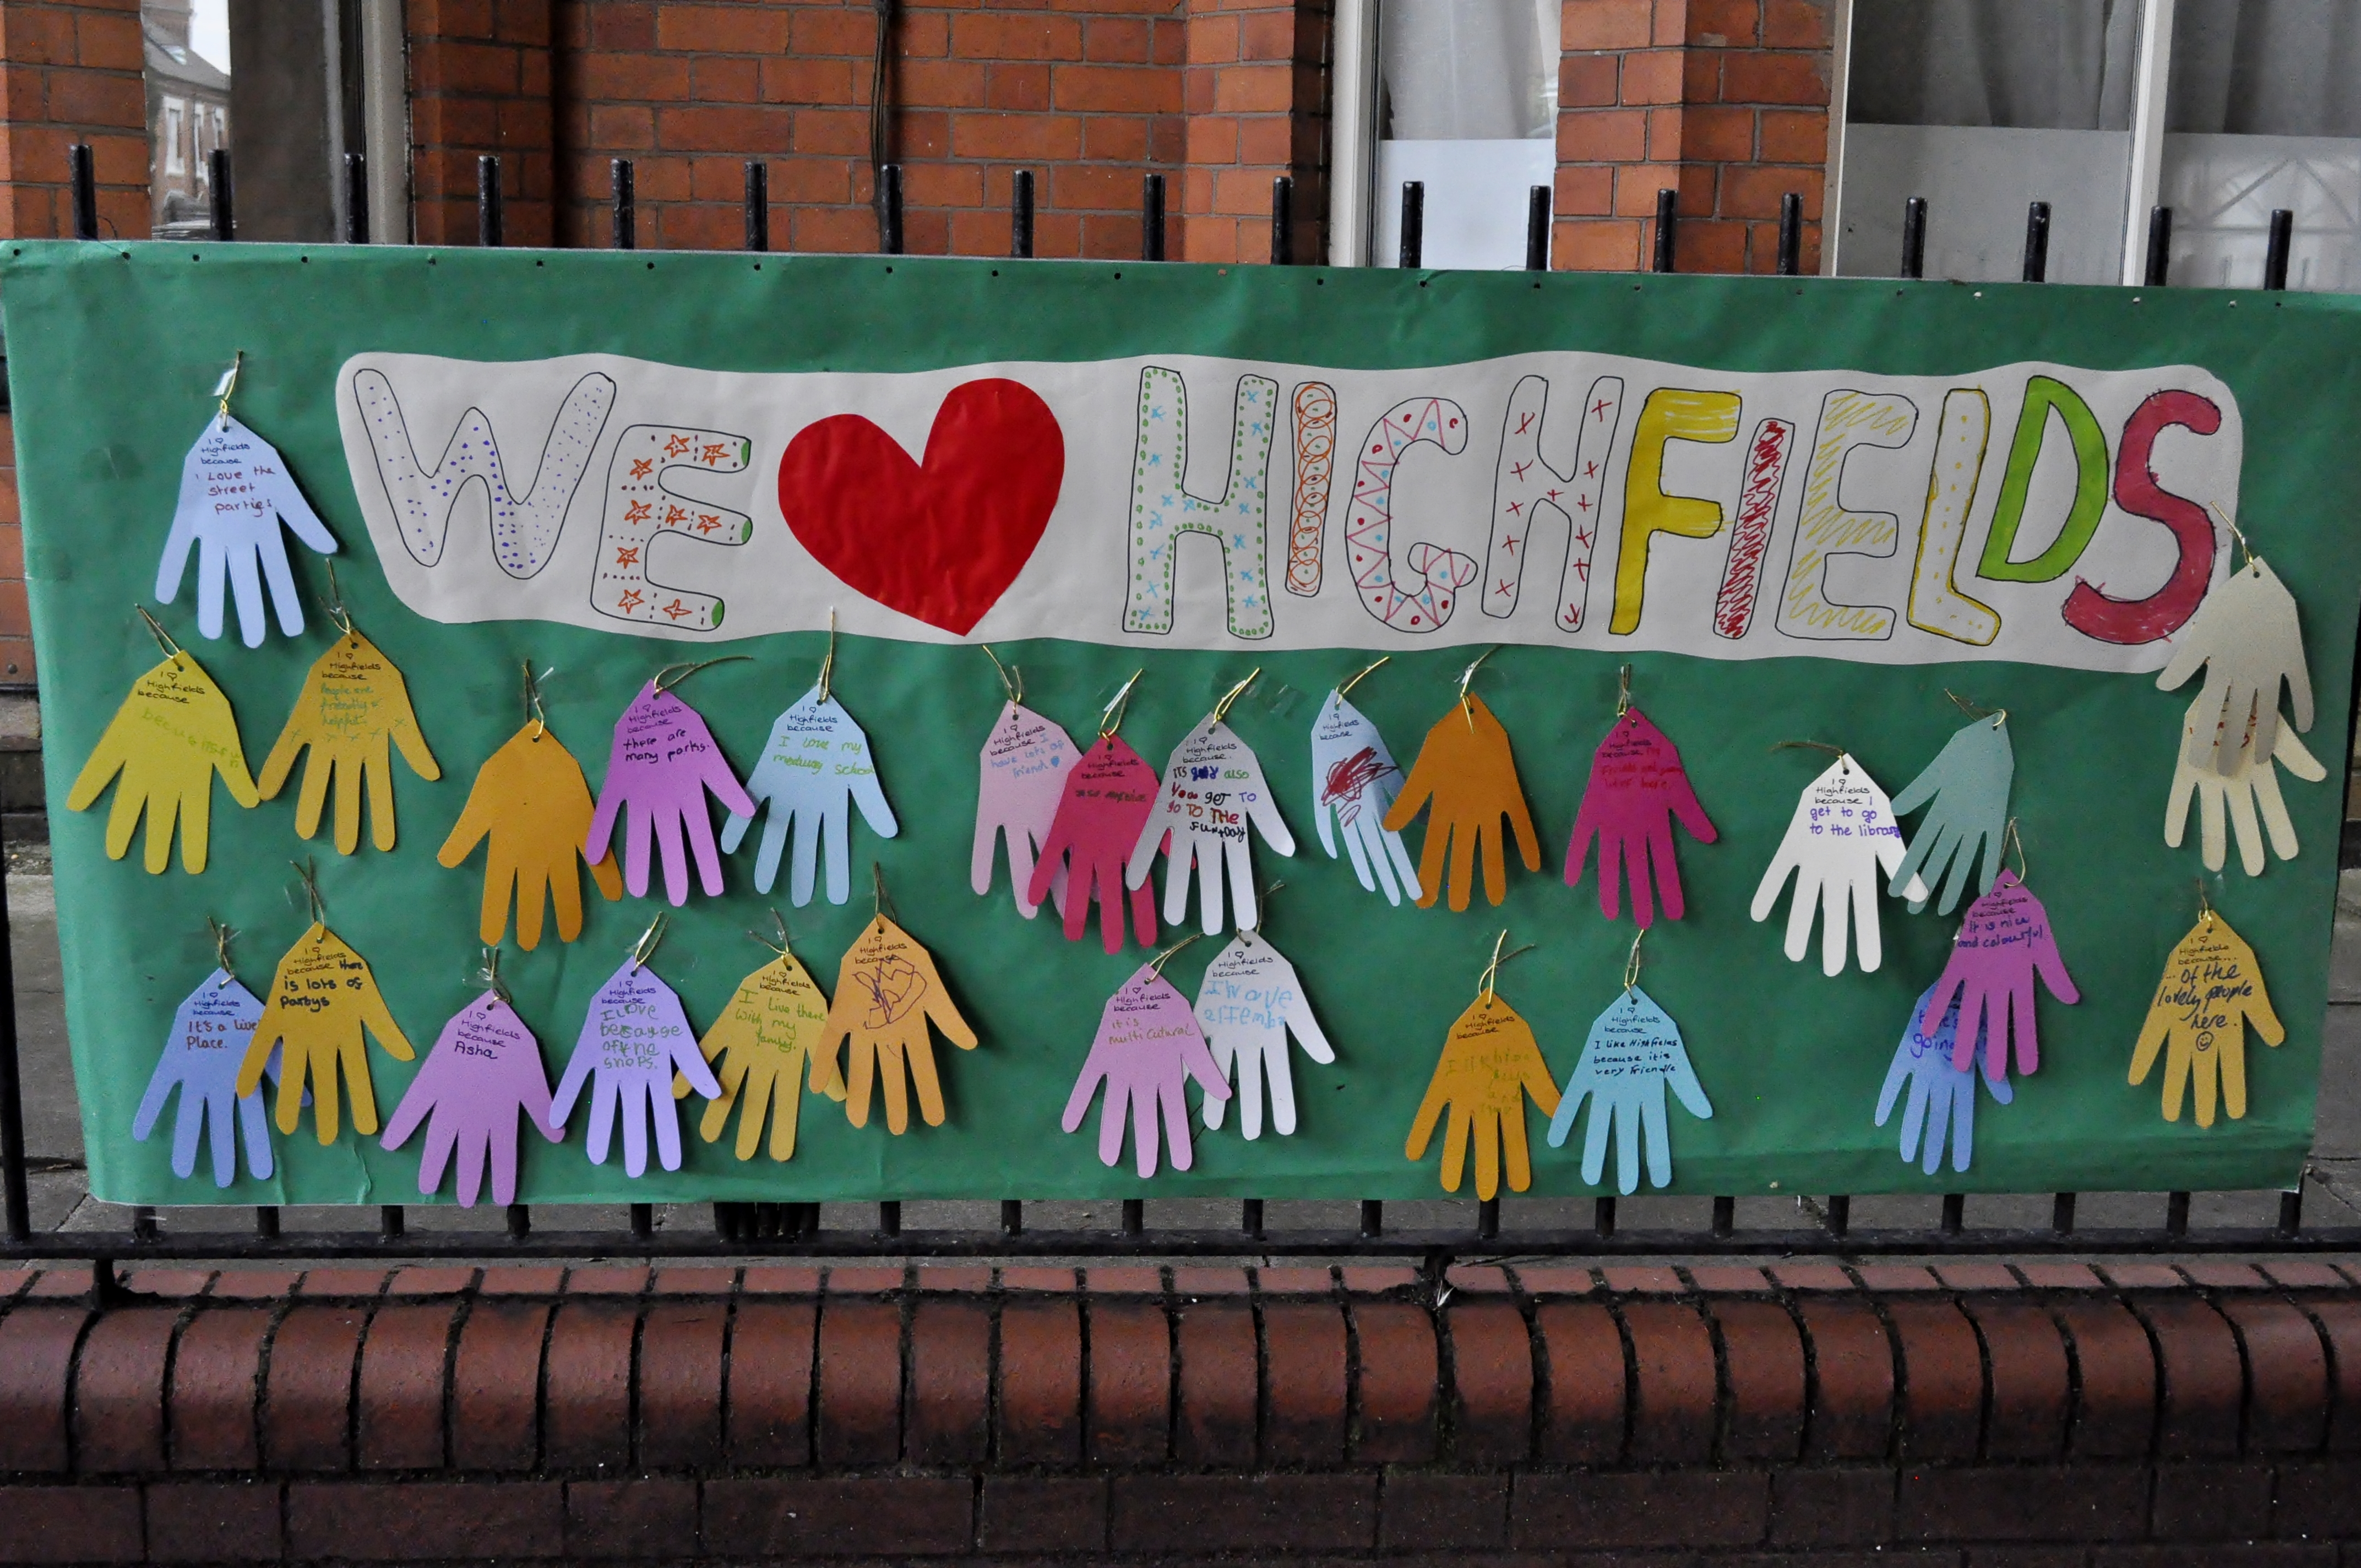 WE HIGHFIELDS
I
Highfields
because
I Love the
street
parties
I
Highfields
because
I
Highfields
because
People are
friendly &
helpful.
I
Highfields
because
there are
many parks.
I
Highfields
because
I love my
meduay school
I
Highfields
because I
have lots of
friend
I
Highfields
because
I
Highfields
because.
ITS also
You get TO
go TO THE
FUN Day
I
Highfields
because
I
Highfields
because
I
Highfields
because I
get to go
to the library
I
Highfields
because
It's a live
Place.
I
Highfields
because there
is lots of
partys
I
Highfields
because
Asha
I
Highfields
because
I Love
because
of the
shops.
I
Highfields
because
I live there
with my
family.
I
Highfields
because
I
Highfields
because
it is
multicutural
I
Highfields
because
I
Highfields
because
I
Highfields
because
I like Highfields
because it is
very friendle
Highfields
because
it is nice
and colourful
going
I
Highfields
because...
... of the
lovely people
here.